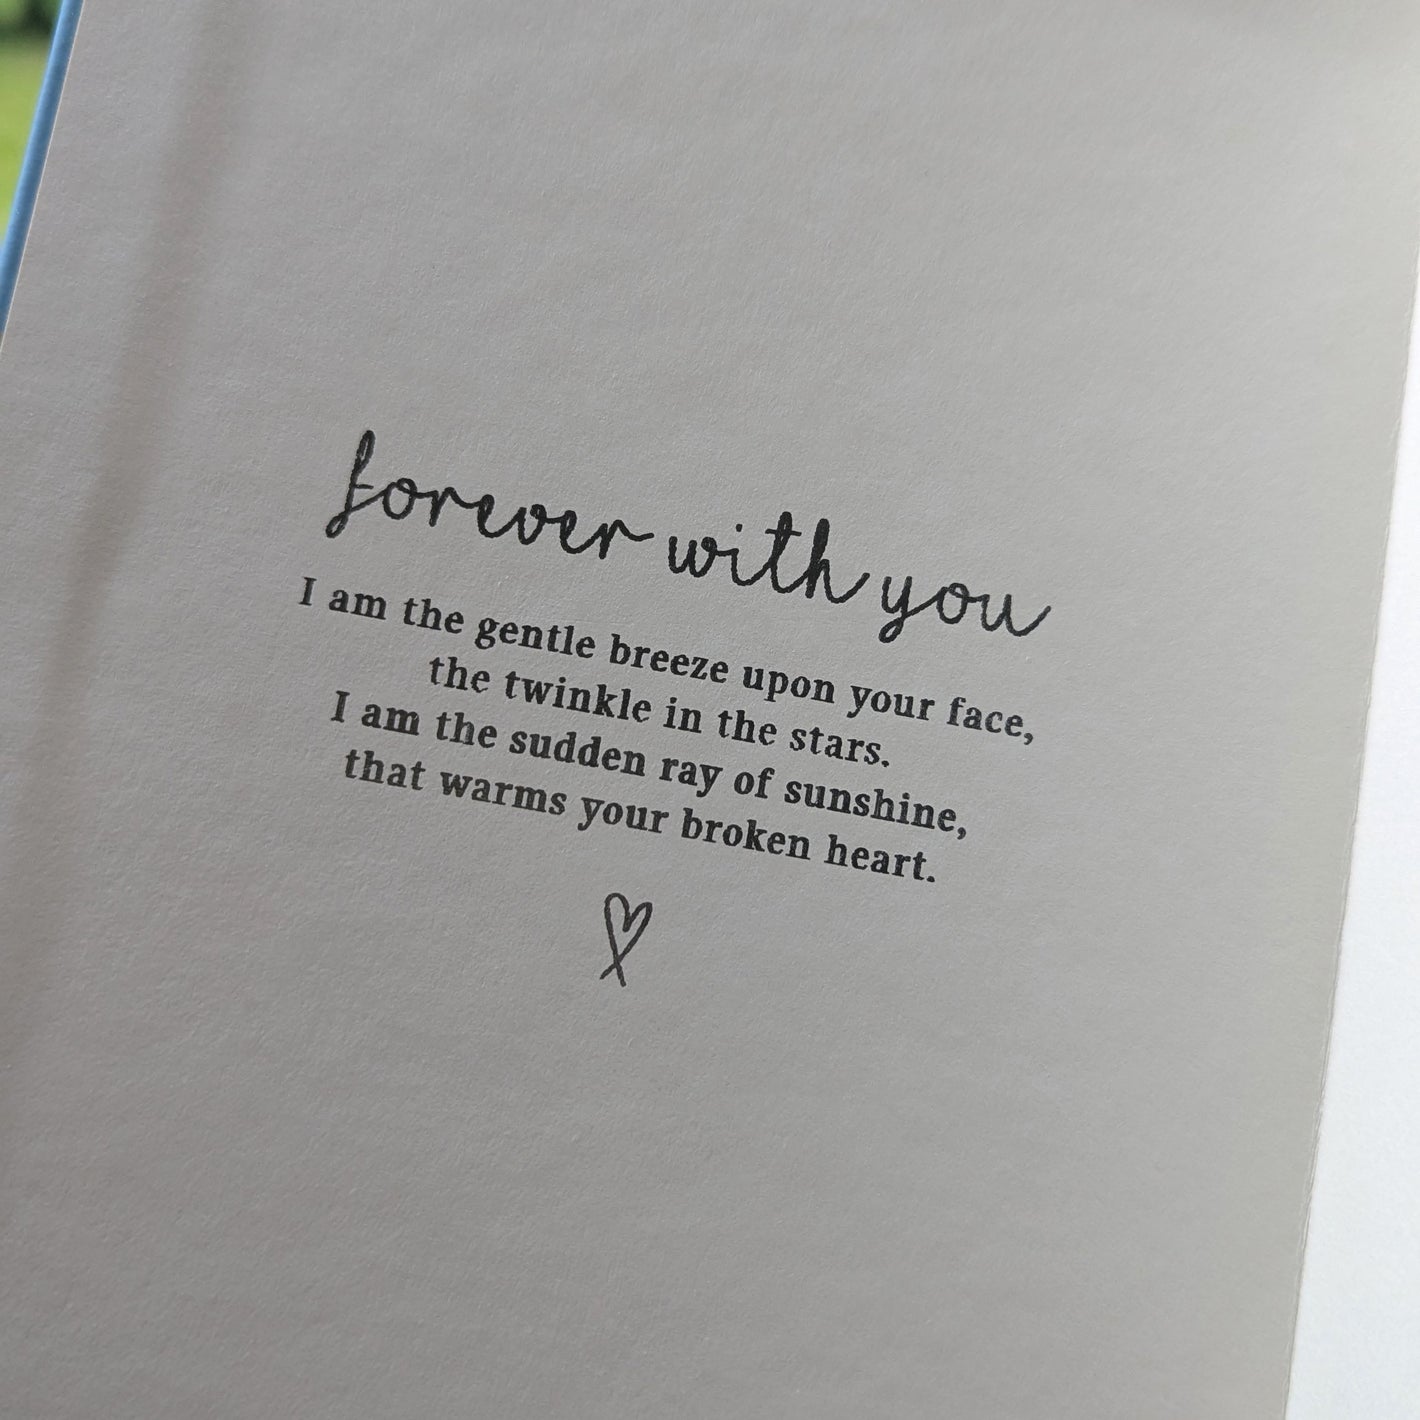 forever with you
I am the gentle breeze upon your face,
the twinkle in the stars.
I am the sudden ray of sunshine,
that warms your broken heart.